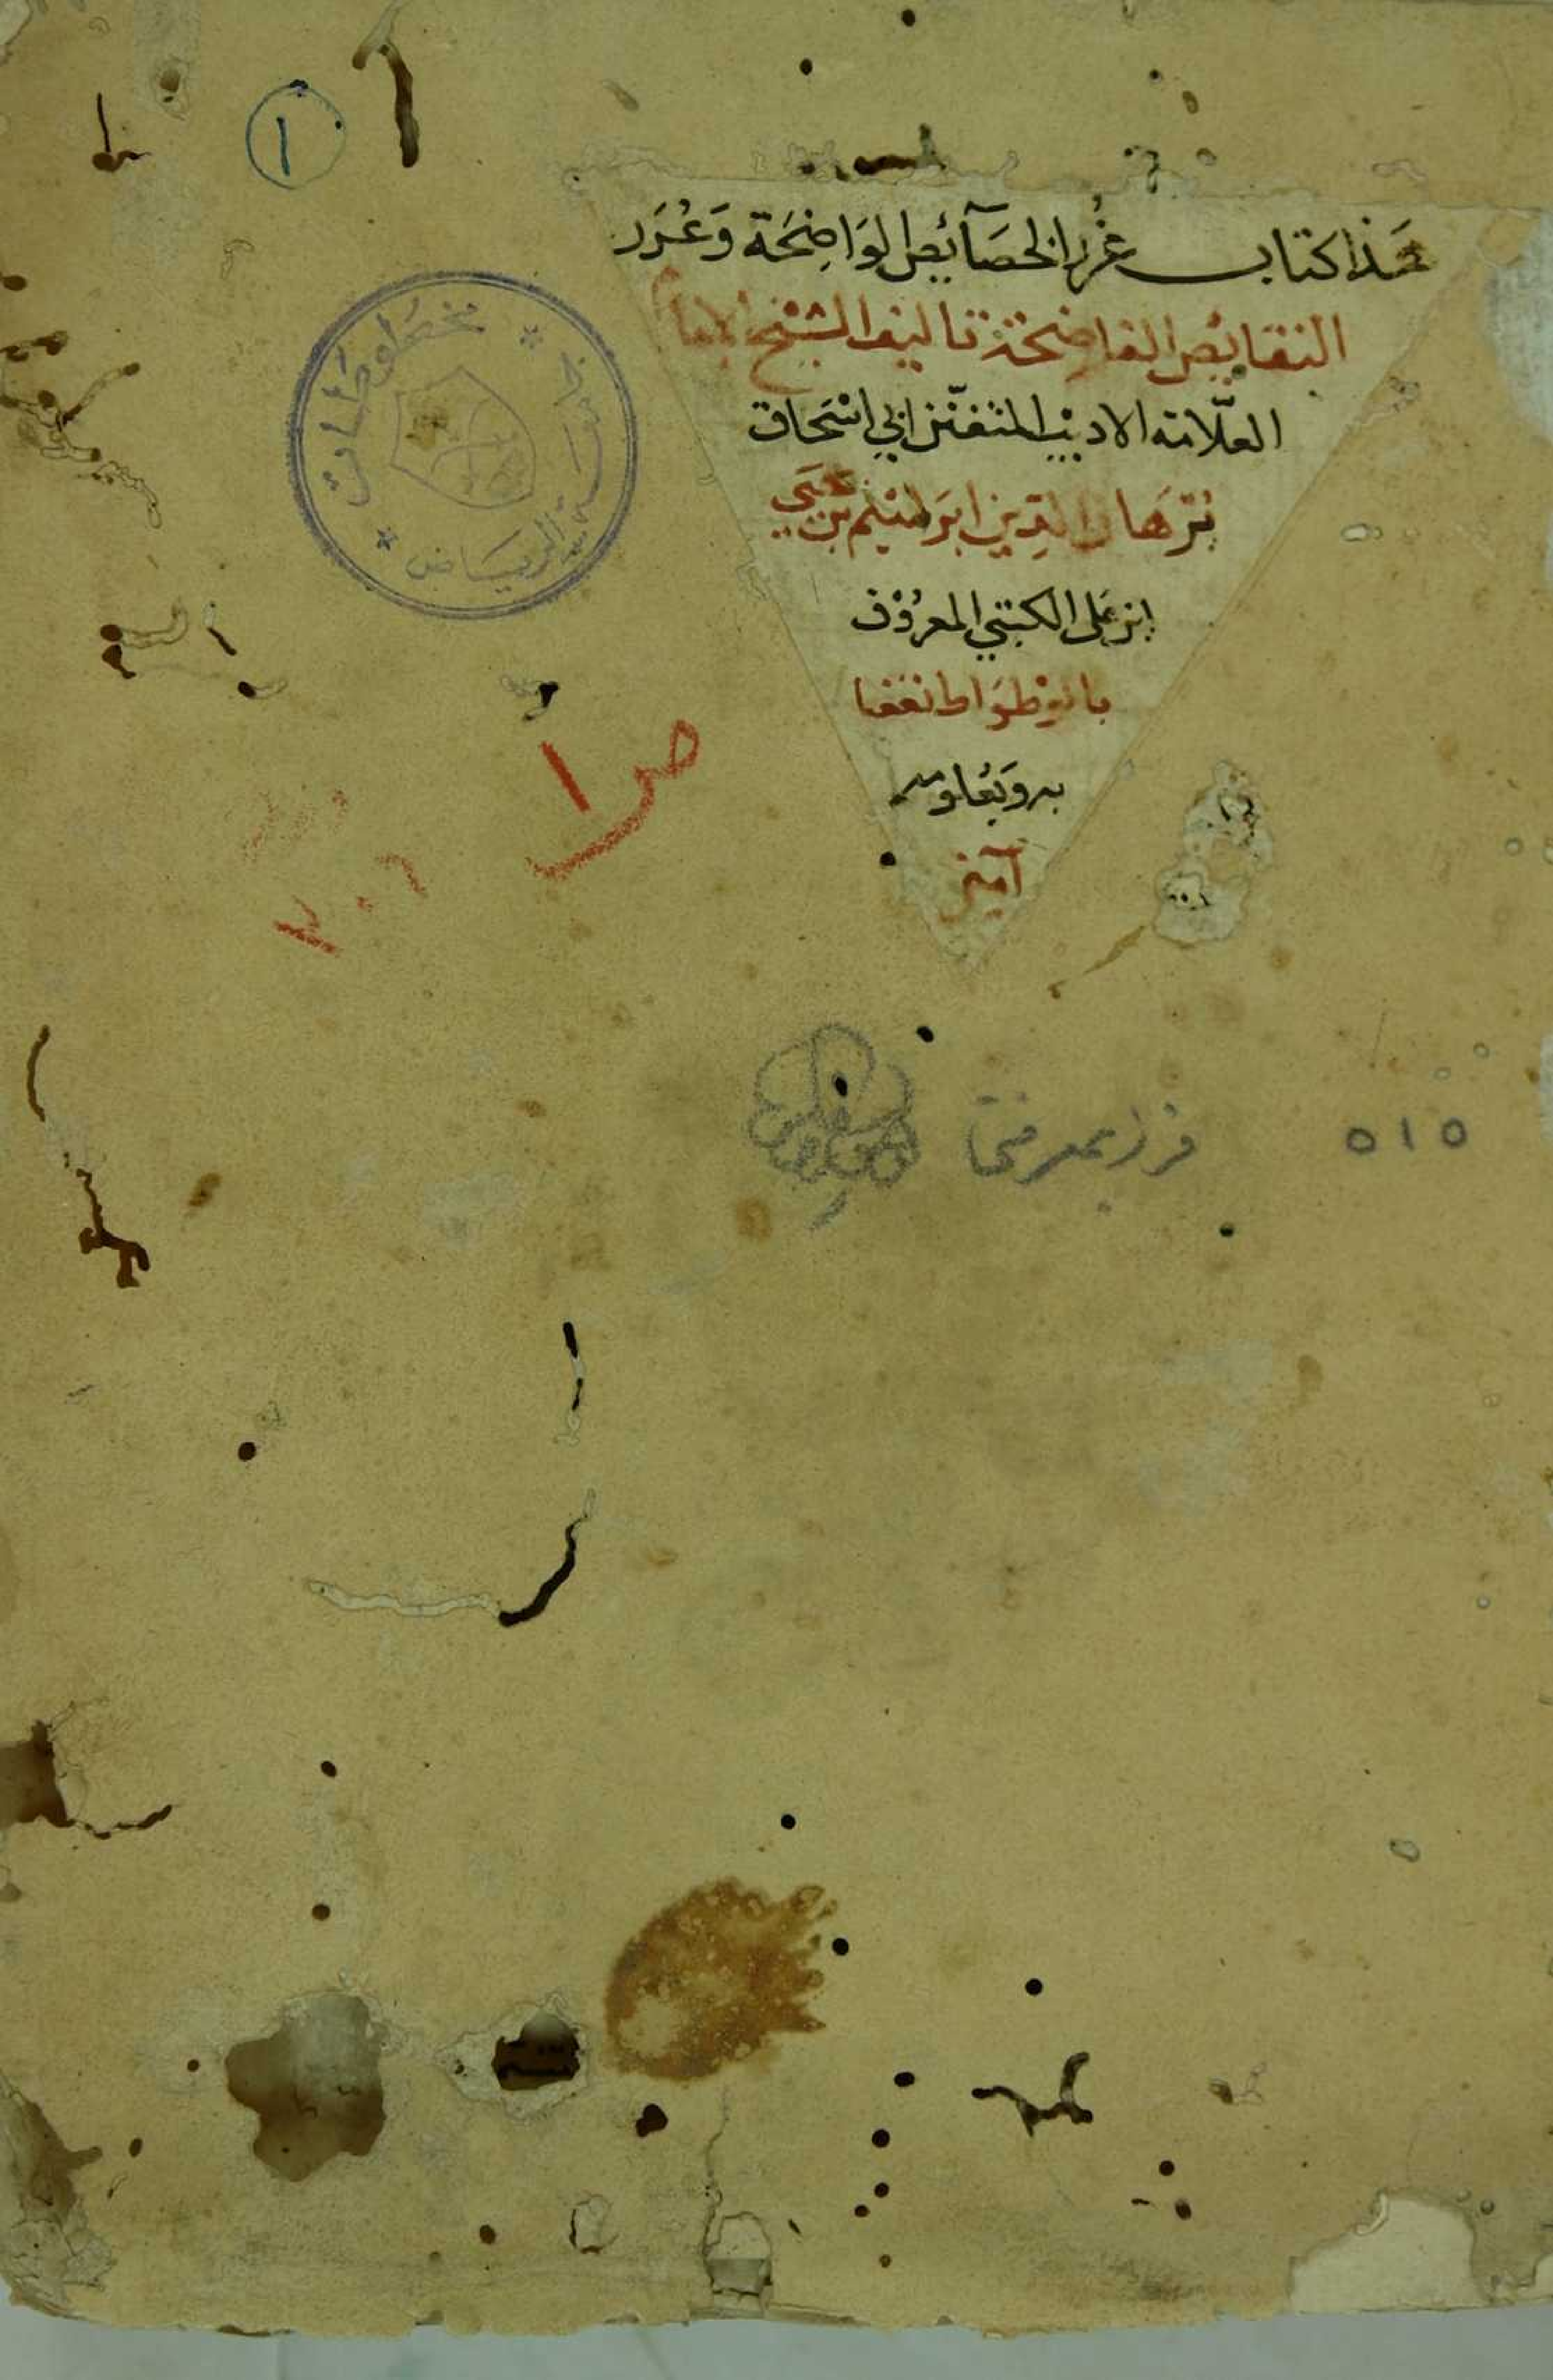 هَذا كتاب غُرر الخصَآئِص الوَاضِحَة وَعُرَر
النقائِص الفاضِحَة تاليف الشيْخ الامام
العلّامة الاديْب المتفنّن ابي اسْحَاق
بُرْهَان الدِّين ابْرَاهيْم بن يَحيَى
ابن عَلى الكُتبي المعرُوْف
بالوَطوَاط نفعنا
به وَبعُلومه
آميْن
مخطوطات
الريَاض
١
ص ١
٥١٥